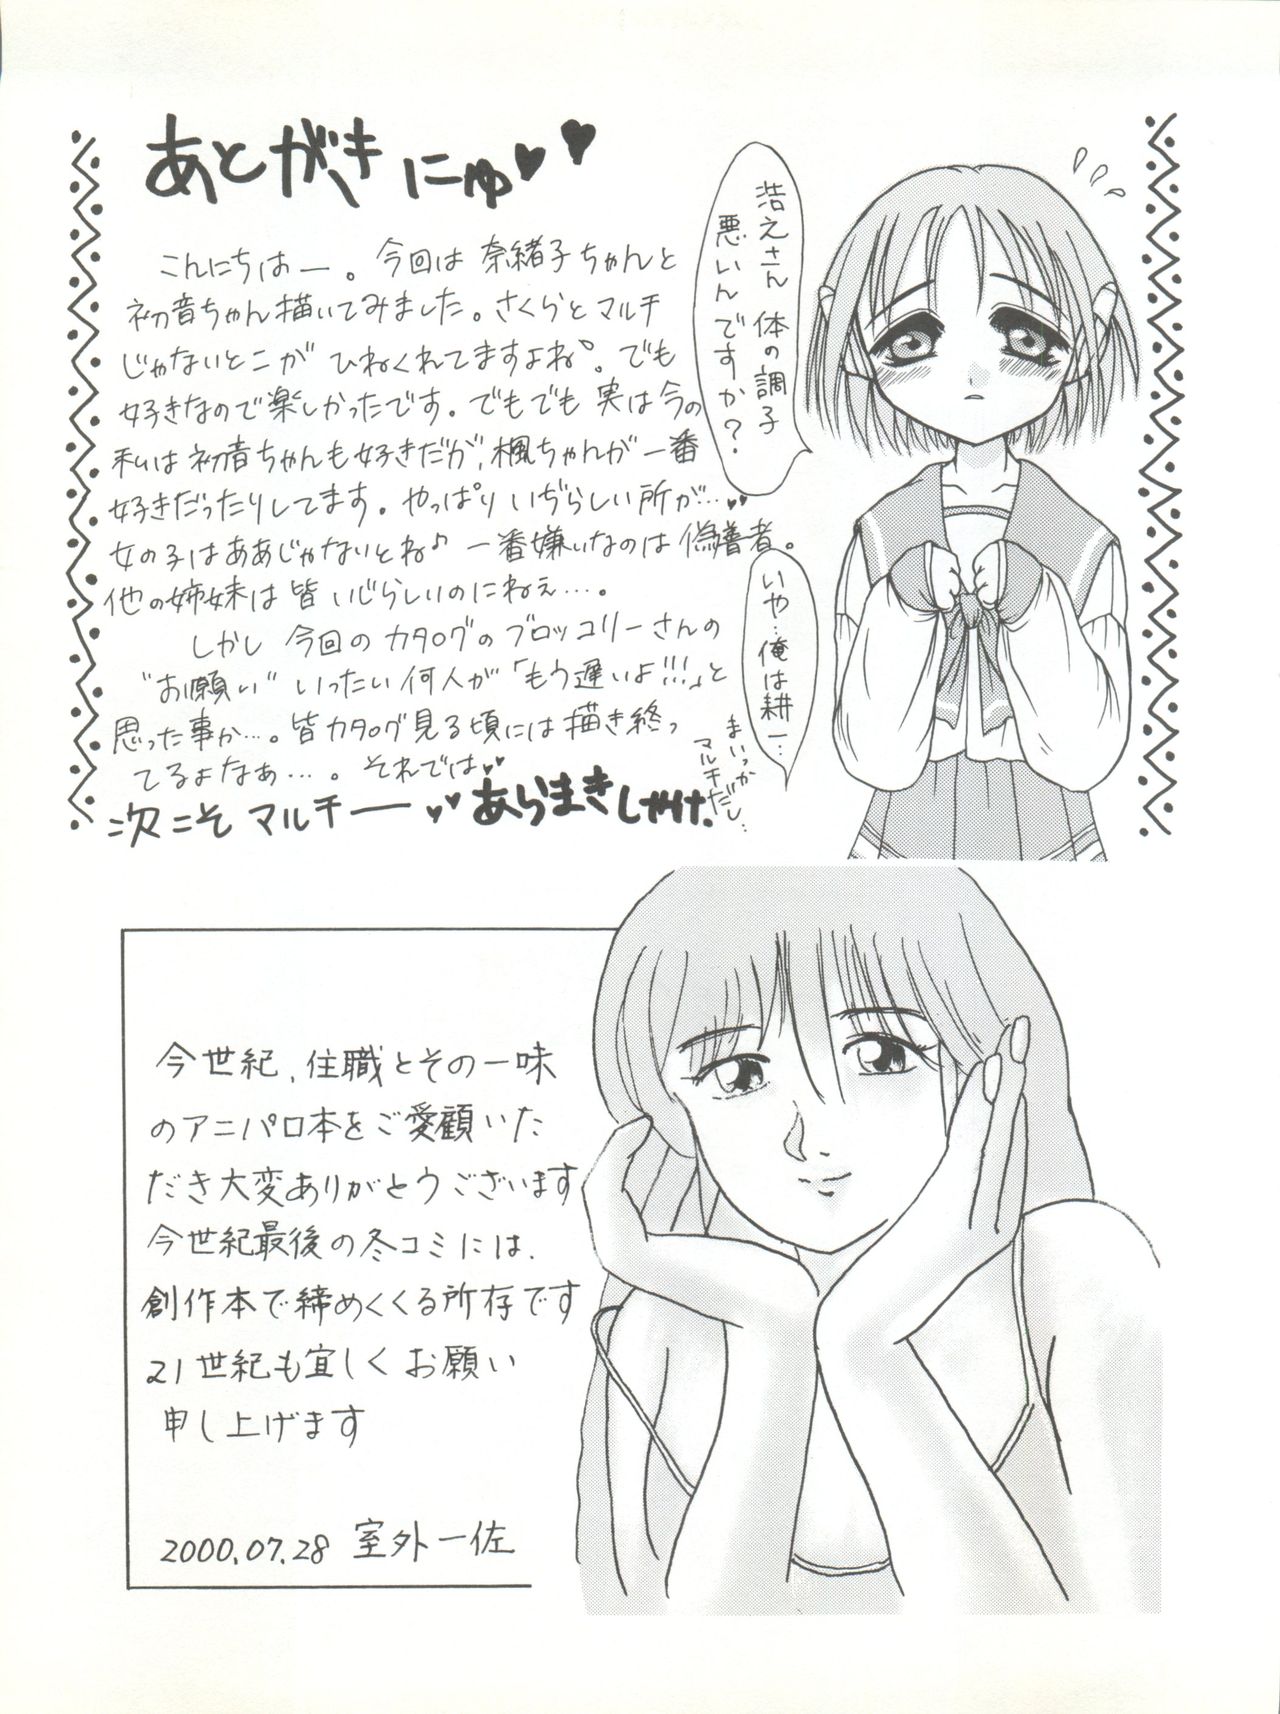 あとがきにゅ♥♥
こんにちはー。今回は奈緒子ちゃんと
初音ちゃん描いてみました。さくらとマルチ
じゃないとこがひねくれてますよね。でも
好きなので楽しかったです。でもでも実は今の
私は初音ちゃんも好きだが、楓ちゃんが一番
好きだったりしてます。やっぱりいぢらしい所が…♥♥
女の子はああじゃないとね♪一番嫌いなのは偽善者。
他の姉妹は皆いじらしいのにねぇ…。
しかし今回のカタログのブロッコリーさんの
"お願い"いったい何人が「もう遅いよ!!!」と
思った事か…。皆カタログ見る頃には描き終っ
てるよなぁ…。それでは♥♥
次こそマルチー♥♥ あらまきしゃけ.
浩之さん体の調子
悪いんですか?
いや…俺は耕一…
まいっか
マルチだし…
今世紀、住職とその一味
のアニパロ本をご愛顧いた
だき大変ありがとうございます
今世紀最後の冬コミには、
創作本で締めくくる所存です
21世紀も宜しくお願い
申し上げます
2000.07.28 室外一佐